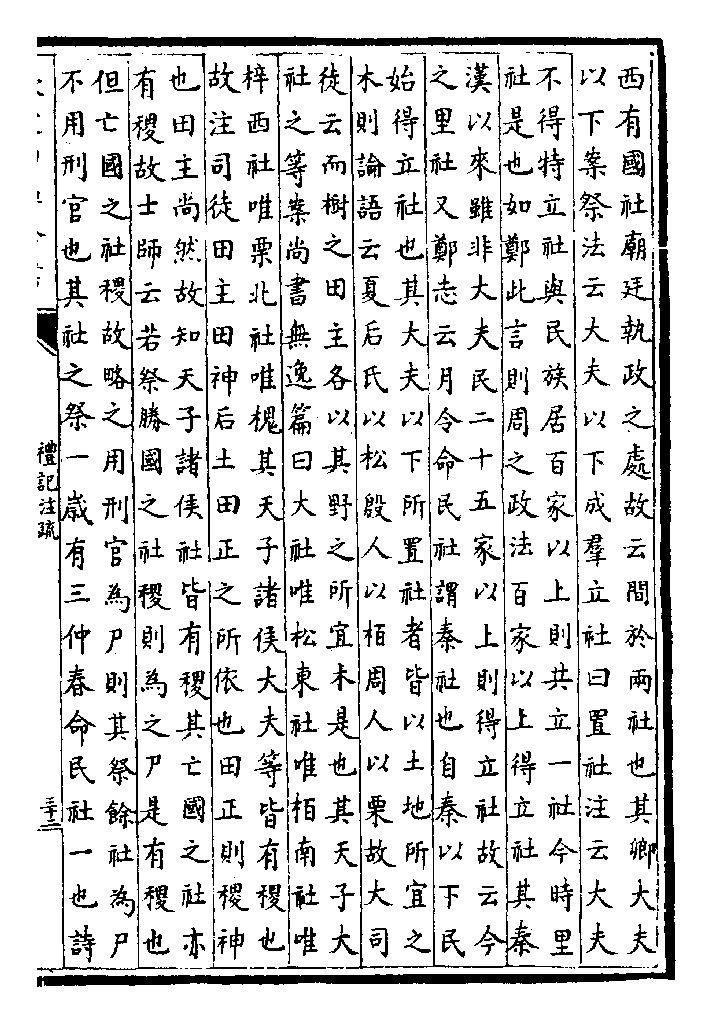 西有國社廟廷執政之處故云間於兩社也其卿大夫
以下案祭法云大夫以下成羣立社曰置社注云大夫
不得特立社與民族居百家以上則共立一社今時里
社是也如鄭此言則周之政法百家以上得立社其秦
漢以來雖非大夫民二十五家以上則得立社故云今
之里社又鄭志云月令命民社謂秦社也自秦以下民
始得立社也其大夫以下所置社者皆以土地所宜之
木則論語云夏后氏以松殷人以栢周人以栗故大司
徒云而樹之田主各以其野之所宜木是也其天子大
社之等案尚書無逸篇曰大社唯松東社唯栢南社唯
梓西社唯栗北社唯槐其天子諸侯大夫等皆有稷也
故注司徒田主田神后土田正之所依也田正則稷神
也田主尚然故知天子諸侯社皆有稷其亡國之社亦
有稷故士師云若祭勝國之社稷則為之尸是有稷也
但亡國之社稷故略之用刑官為尸則其祭餘社為尸
不用刑官也其社之祭一歲有三仲春命民社一也詩
禮記注疏
三十二